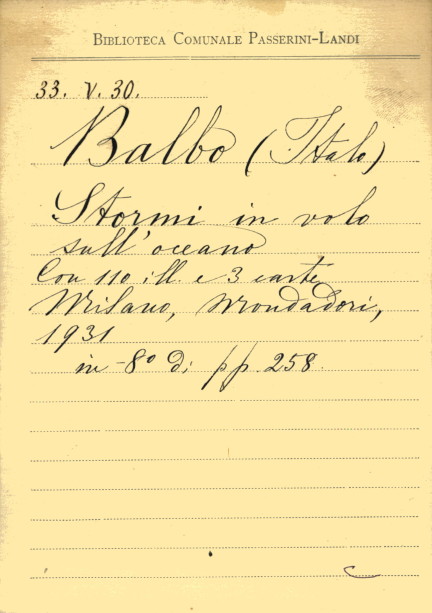 BIBLIOTECA COMUNALE PASSERINI-LANDI
33. V. 30.
Balbo (Italo)
Stormi in volo
sull'oceano
Con 110 ill. e 3 carte
Milano, Mondadori,
1931
in-8° di pp. 258.